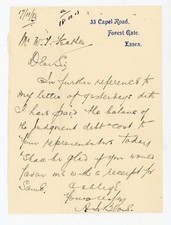 17/11/11
33 Capel Road,
Forest Gate,
Essex.
Mr W. J.
Dear Sir
In further reference to
my letter of yesterdays date
I have paid the balance of
the judgment debt & cost to
your representative today
Shall be glad if you would
favour me with a receipt for
Same.
Yours truly